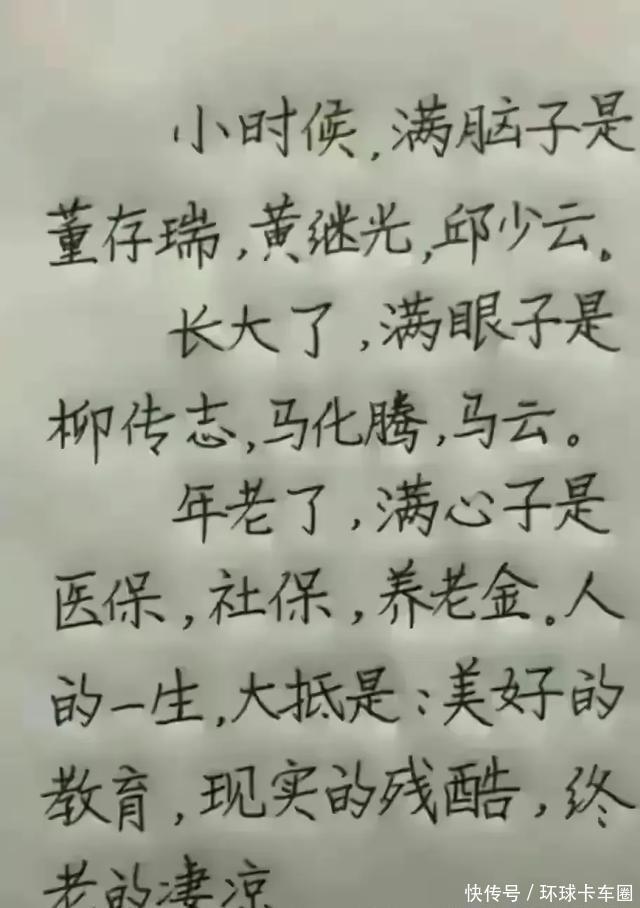 小时候,满脑子是
董存瑞,黄继光,邱少云。
长大了,满眼子是
柳传志,马化腾,马云。
年老了,满心子是
医保,社保,养老金。人
的一生,大抵是:美好的
教育,现实的残酷,终
老的凄凉
快传号/环球卡车圈